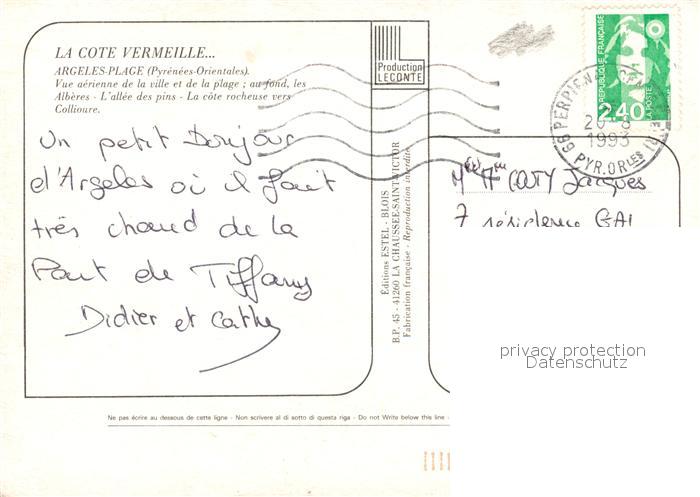 LA COTE VERMEILLE...
ARGELES-PLAGE (Pyrénées-Orientales).
Vue aérienne de la ville et de la plage ; au fond, les
Albères - L'allée des pins - La côte rocheuse vers
Collioure.
Production
LECONTE
RÉPUBLIQUE FRANÇAISE
2,40
LA POSTE
66 PERPIGNAN
1993
PYR.ORles
Un petit Bonjour
d'Argeles où il fait
très chaud de la
Part de Tiffany
Didier et Cathy
Éditions ESTEL - BLOIS
B.P. 45 - 41260 LA CHAUSSÉE-SAINT-VICTOR
Fabrication française - Reproduction interdite
Jacques
7 résidence GAL
privacy protection
Datenschutz
Ne pas écrire au dessous de cette ligne - Non scrivere al di sotto di questa riga - Do not Write below this line -